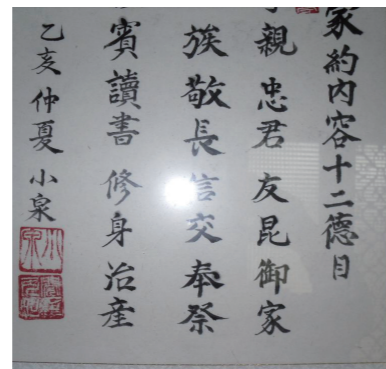 家約內容十二德目
親 忠君 友昆 御家
族 敬長 信交 奉祭
賓 讀書 修身 治産
乙亥仲夏 小泉